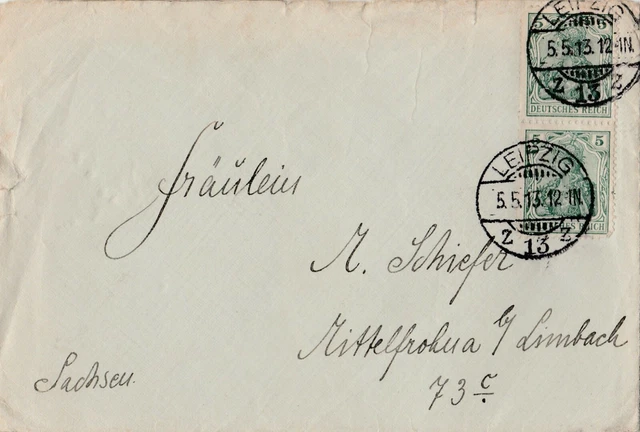 LEIPZIG
5.5.13.12-1N.
Z 13 Z
DEUTSCHES REICH
5 5
LEIPZIG
5.5.13.12-1N.
Z 13 Z
REICH
Fräulein
M. Schiefer
Mittelfrohna b/ Limbach
73 c
Sachsen.